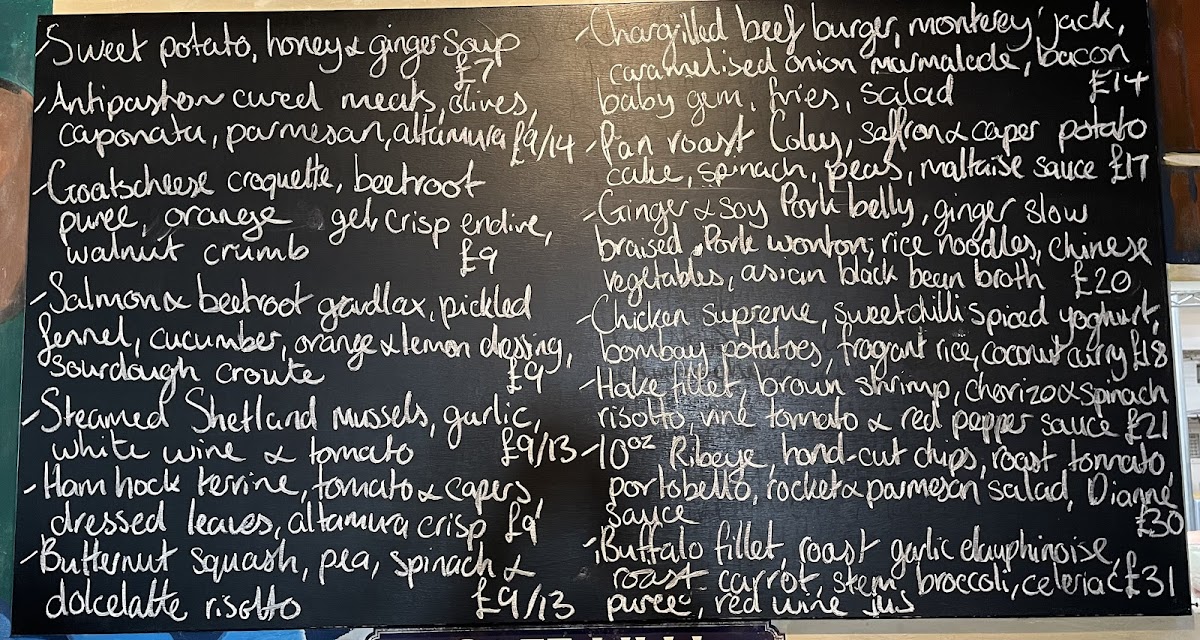 -Sweet potato, honey & ginger soup
£7
-Antipasto cured meats, olives,
caponata, parmesan, altamura £9/14
-Goatscheese croquette, beetroot
puree, orange gel, crisp endive,
walnut crumb £9
-Salmon & beetroot gavdlax, pickled
fennel, cucumber, orange & lemon dressing,
sourdough croute £9
-Steamed Shetland mussels, garlic,
white wine & tomato £9/13
-Ham hock terrine, tomato & capers,
dressed leaves, altamura crisp £9
-Butternut squash, pea, spinach &
dolcelatte risotto £9/13
-Chargrilled beef burger, monterey jack,
caramelised onion marmalade, bacon
baby gem, fries, salad £14
-Pan roast Coley, saffron & caper potato
cake, spinach, peas, maltaise sauce £17
-Ginger & soy Pork belly, ginger slow
braised Pork wonton, rice noodles, chinese
vegetables, asian black bean broth £20
-Chicken supreme, sweet chilli spiced yoghurt,
bombay potatoes, fragant rice, coconut curry £18
-Hake fillet, brown shrimp, chorizo & spinach
risotto, vine tomato & red pepper sauce £21
-10oz Ribeye, hand-cut chips, roast tomato,
portobello, rocket & parmesan salad, Dianne
sauce £30
-Buffalo fillet, roast garlic dauphinoise,
roast carrot, stem broccoli, celeriac £31
puree, red wine jus